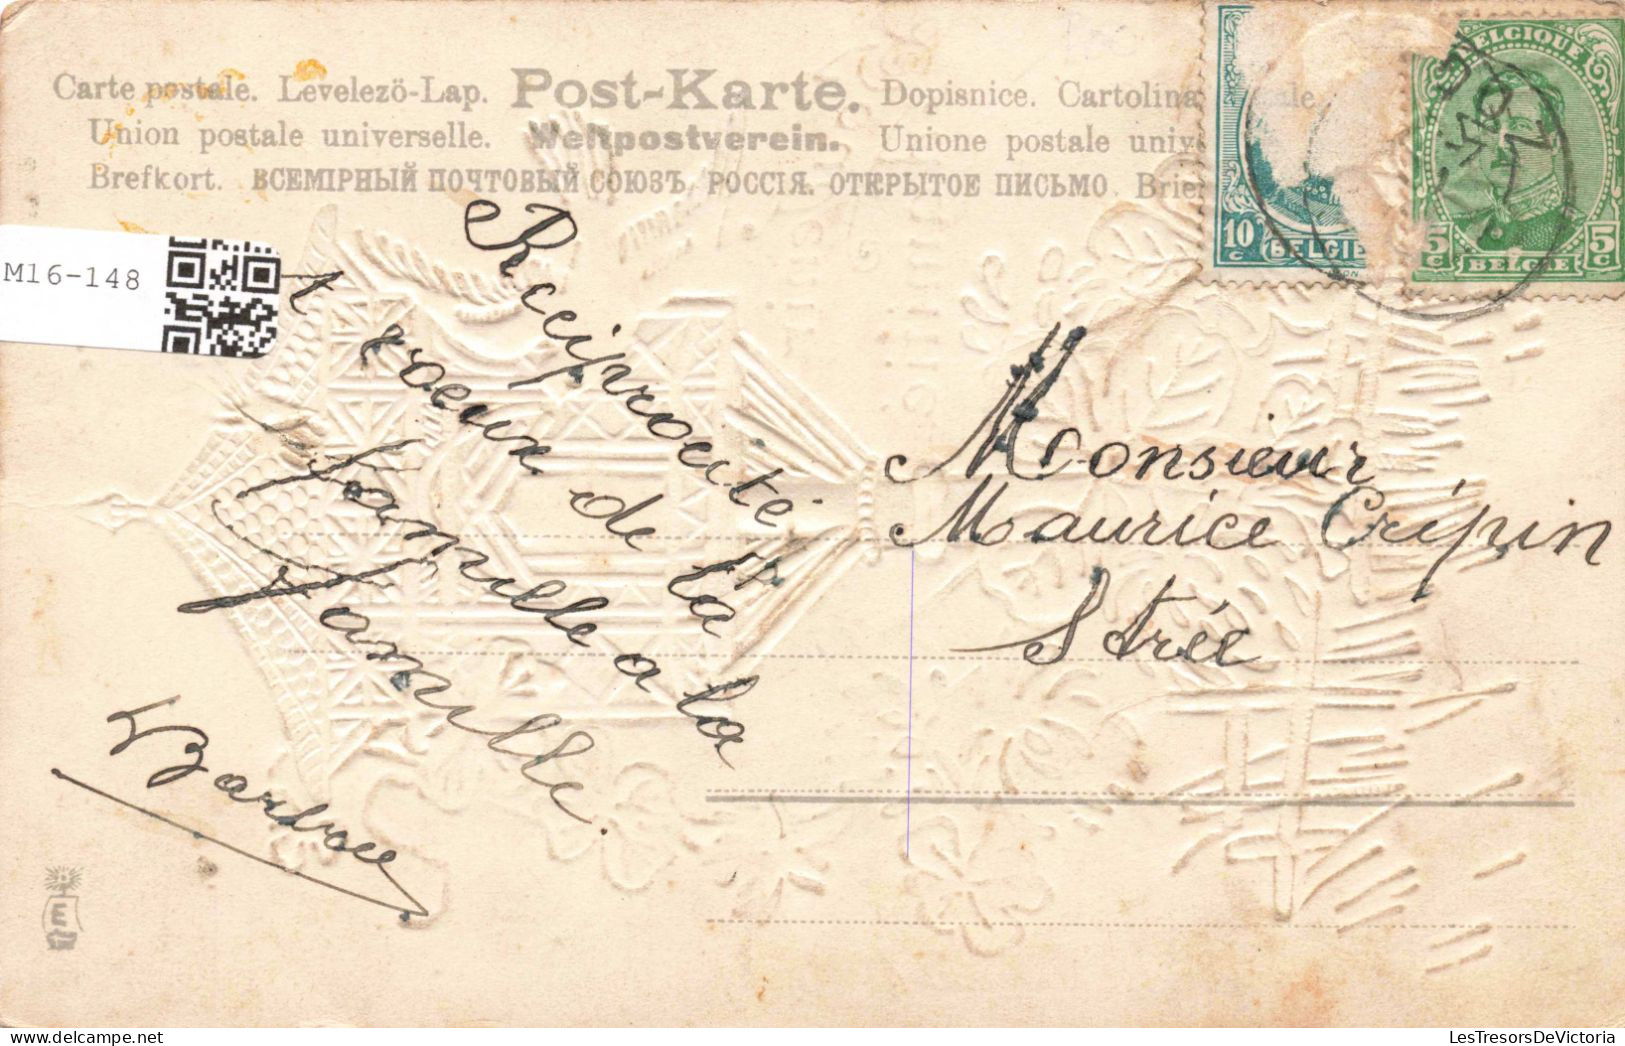 Carte postale. Levelezö-Lap. Post-Karte. Dopisnice. Cartolina
Union postale universelle. Weltpostverein. Unione postale univ
Brefkort. ВСЕМІРНЫЙ ПОЧТОВЫЙ СОЮЗЪ. РОССІЯ. ОТКРЫТОЕ ПИСЬМО. Brie
M16-148
10 c BELGIE
BELGIQUE
5 c BELGIE 5 c
Réciprocité
t voeux de la
famille a la
famille.
Monsieur
Maurice Crépin
Strée
LesTresorsDeVictoria.com